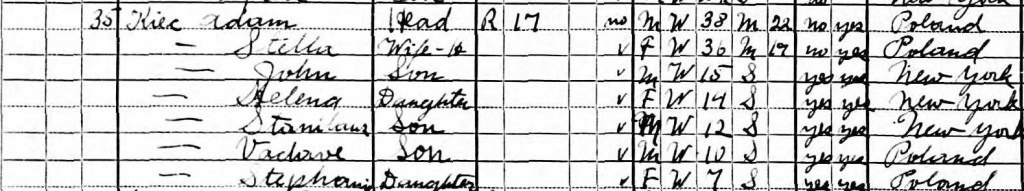 35 Kiec Adam Head R 17 no M W 38 M 22 no yes Poland
— Stella Wife-H v F W 36 M 19 no yes Poland
— John Son v M W 15 S yes yes New York
— Helena Daughter v F W 14 S yes yes New York
— Stanilaus Son v M W 12 S yes yes New York
— Vaclave Son v M W 10 S yes yes Poland
— Stephanie Daughter v F W 7 S yes yes Poland